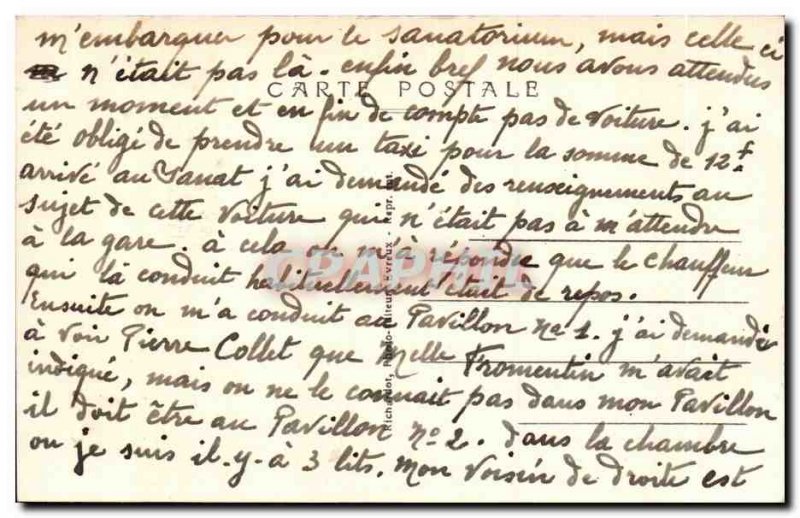 m'embarquer pour le sanatorium, mais celle ci
n'était pas là. enfin bref nous avons attendus
CARTE POSTALE
un moment et en fin de compte pas de voiture. j'ai
été obligé de prendre un taxi pour la somme de 12f
arrivé au Sanat j'ai demandé des renseignements au
sujet de cette voiture qui n'était pas à m'attendre
à la gare. à cela on m'à répondu que le chauffeur
qui là conduit habituellement était de repos.
Ensuite on m'a conduit au Pavillon No 1. j'ai demandé
à voir Pierre Collet que Melle Fromentin m'avait
indiqué, mais on ne le connait pas dans mon Pavillon
il doit être au Pavillon No 2. dans la chambre
ou je suis il-y-à 3 lits. Mon voisin de droite est
Richardot, Photo-Editeur, Evreux - Repr. int.
CPAPHIL